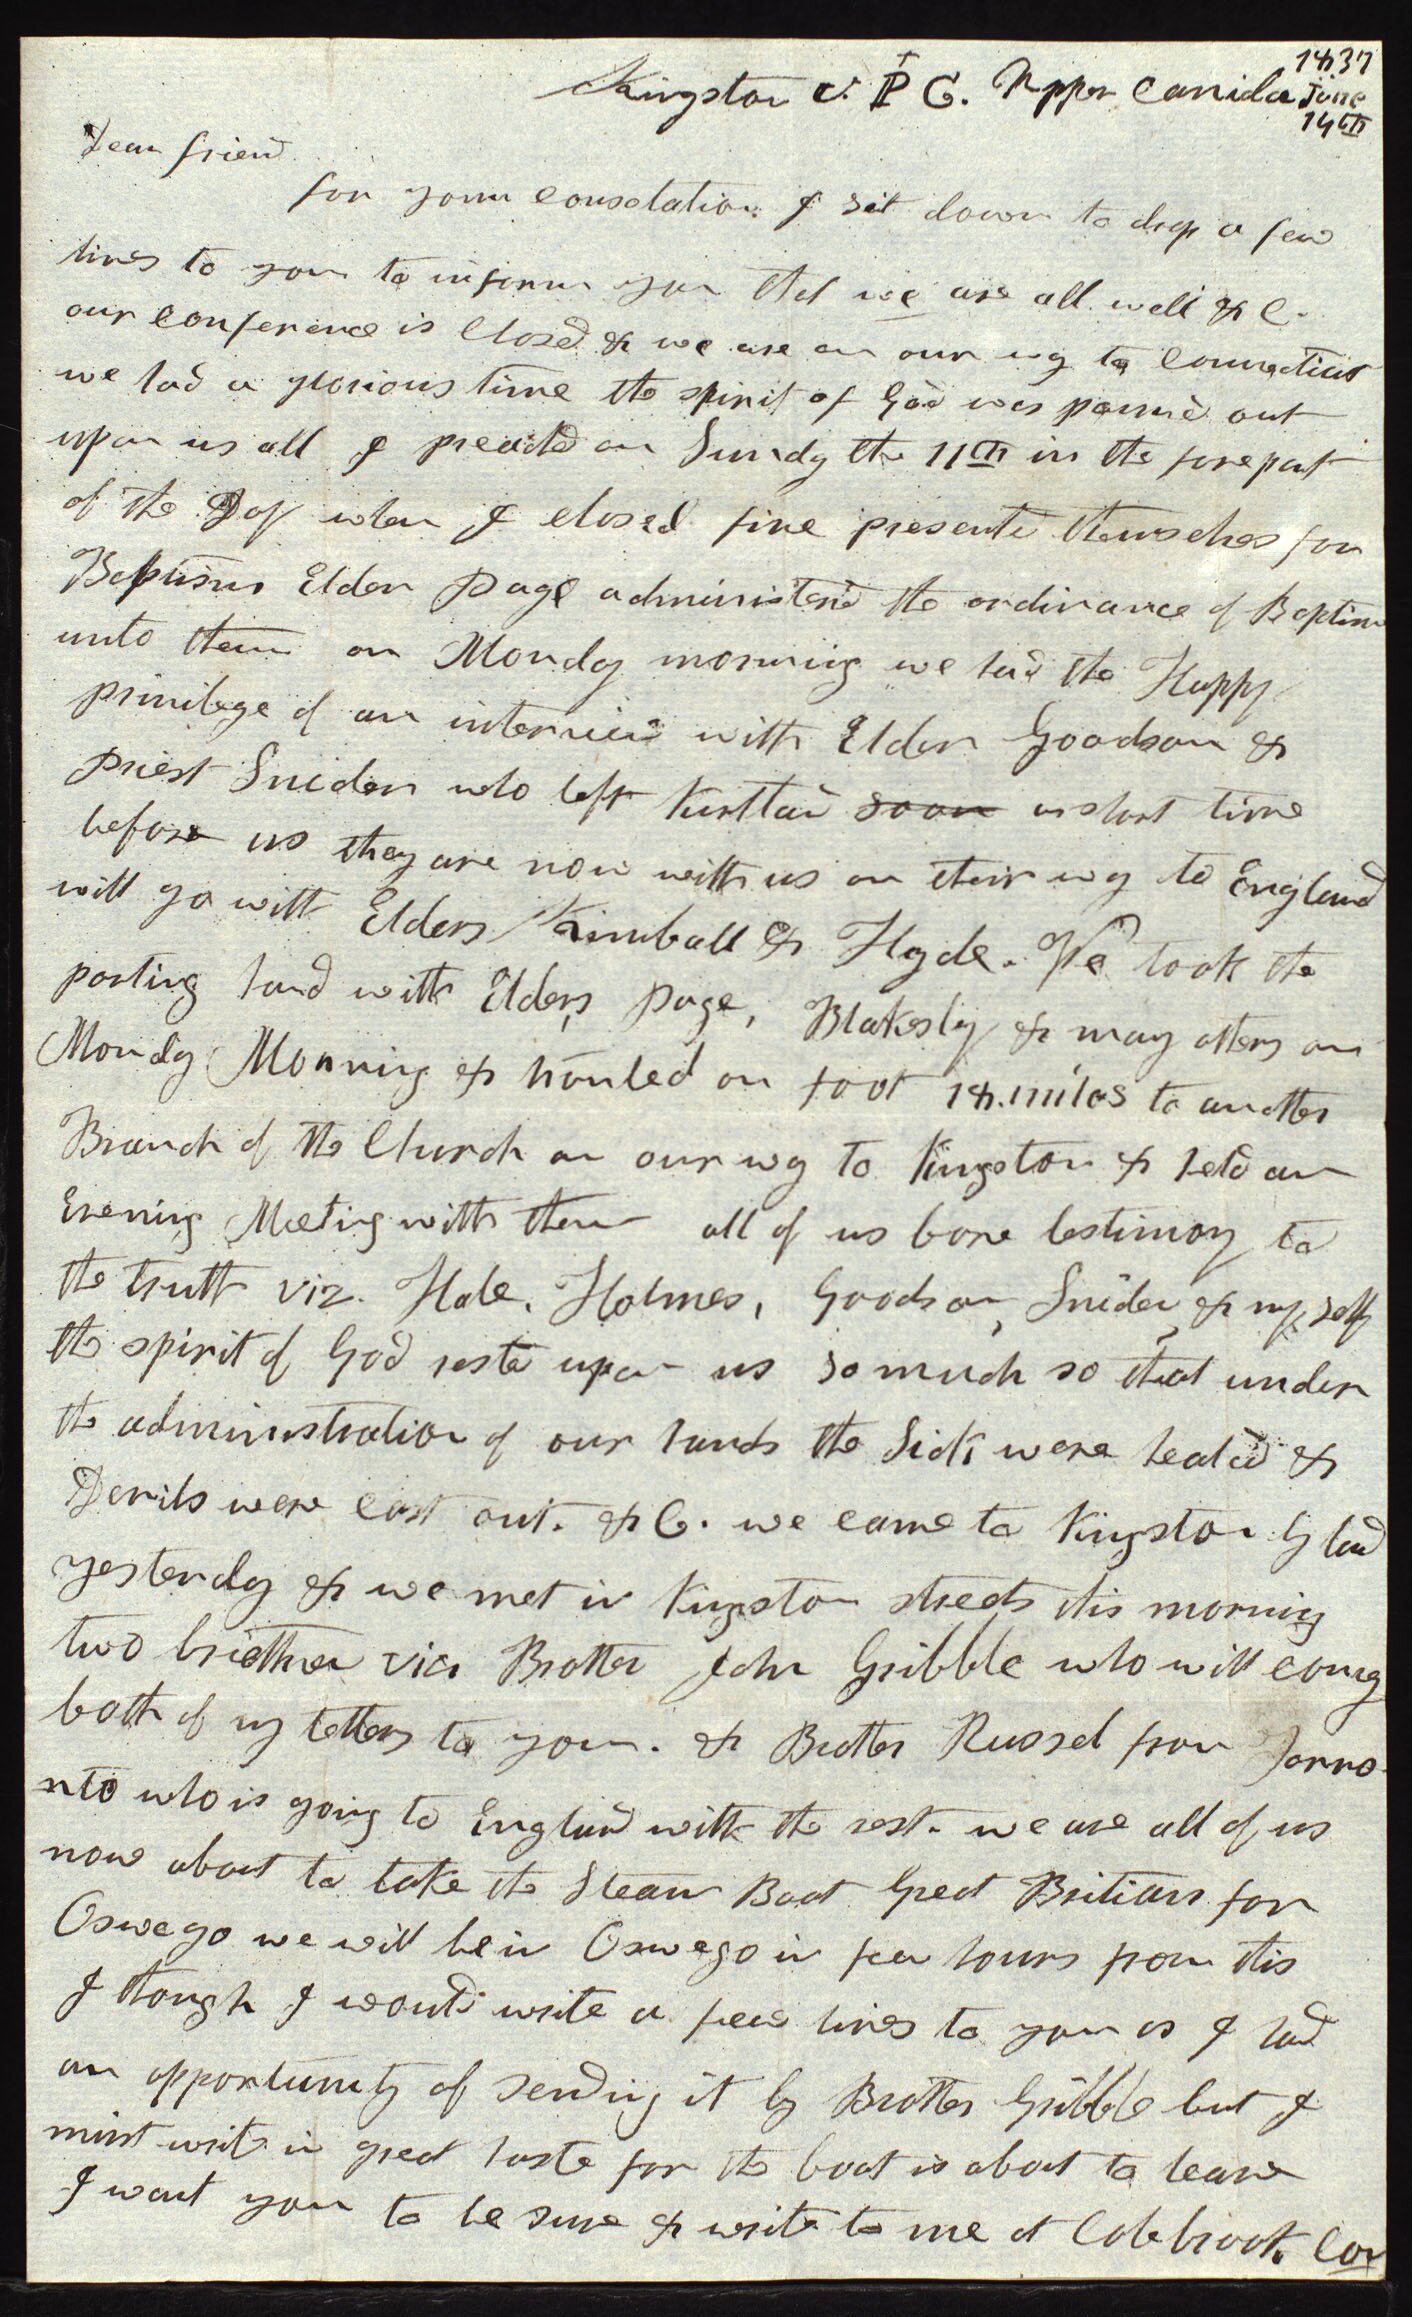 Kingston U. P C. Upper Canida 1837
June
14th
Dear friend
for your Consolation I sit down to drop a few
lines to you to inform you that we are all well & C.
our conference is Closed & we are on our way to Connecticut
we had a glorious time the spirit of God was pourd out
upon us all I preachd on Sundy the 11th in the forepart
of the Day when I closed five presentd themselves for
Baptism Elder Page administerd the ordinance of Baptism
unto them on Mondy morning we had the Happy
Privilege of an interview with Elder Goodson &
Priest Snider who left Kirtland soon a short time
before us they are now with us on their way to England
will go with Elders Kimball & Hyde. We took the
parting hand with Elders, Page, Blakesly & many others on
Mondy Morning & travled on foot 18. miles to another
Branch of the Church on our way to Kingston & held an
Evening Meeting with them all of us bore testimony to
the truth viz. Hale, Holmes, Goodson, Snider, & my self
the spirit of God restd upon us so much so that under
the administration of our hands the Sick were heald &
Devils were cast out. & C. we came to Kingston by land
yesterday & we met in Kingston streets this morning
two breethren viz Brother John Gribble who will convey
both of my letters to you. & Brother Russel from Torro-
nto who is going to England with the rest. we are all of us
now about to take the Steam Boat Great Britian for
Oswego we will be in Oswego in few hours from this
I though I would write a few lines to you as I had
an opportunity of sending it by Brother Gribble but I
must write in great haste for the boat is about to leave
I want you to be sure & write to me at Colebrook. Con